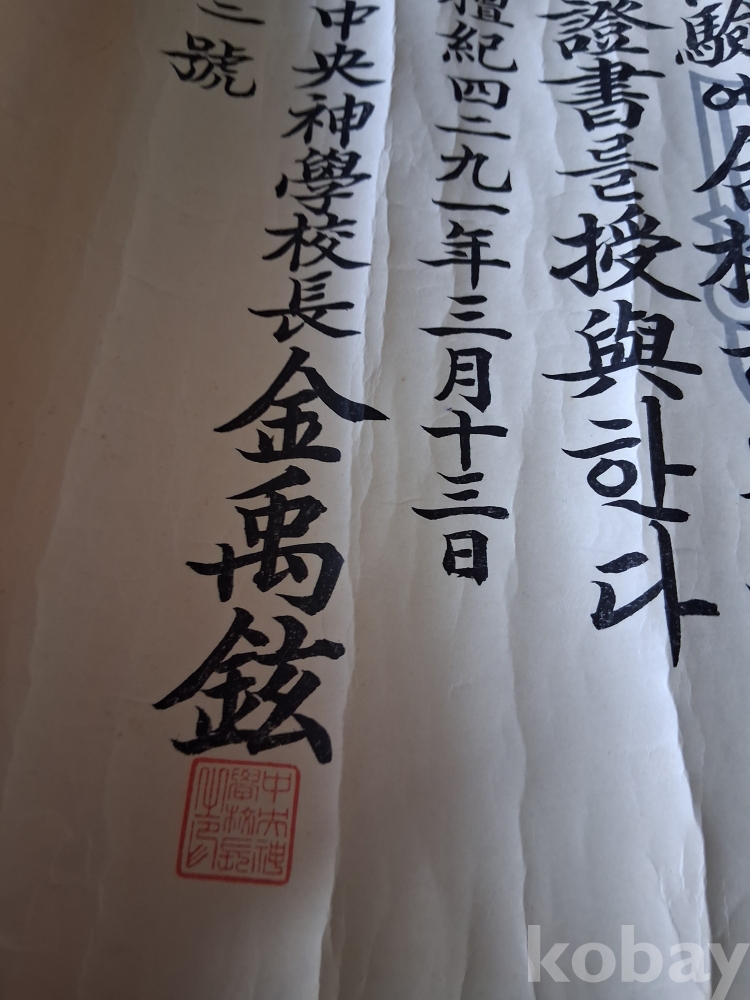 驗에合格
證書를授與한다
檀紀四二九一年三月十三日
中央神學校長金禹鉉
二號
中央神
學校長
之印
kobay